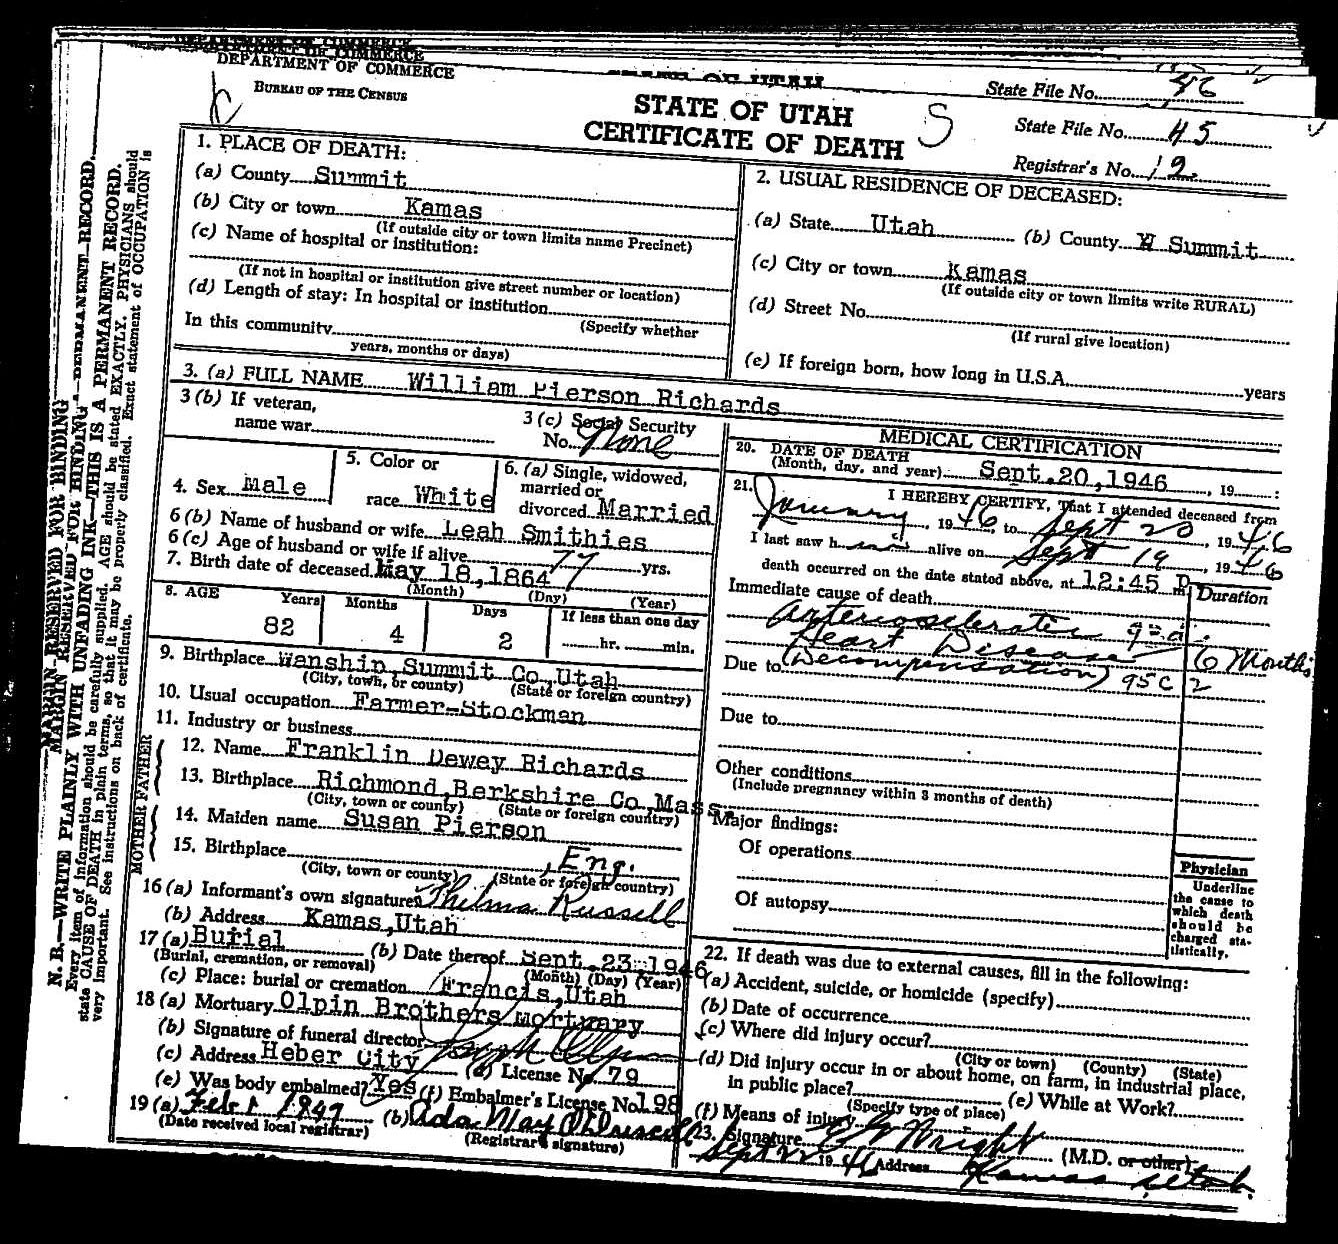 DEPARTMENT OF COMMERCE
DEPARTMENT OF COMMERCE
DEPARTMENT OF COMMERCE
BUREAU OF THE CENSUS
STATE OF UTAH
STATE OF UTAH
CERTIFICATE OF DEATH
S
State File No. 46
State File No. 45
Registrar's No. 12.
MARGIN RESERVED FOR BINDING
MARGIN RESERVED FOR BINDING
N. B.—WRITE PLAINLY WITH UNFADING INK—THIS IS A PERMANENT RECORD.
Every item of information should be carefully supplied. AGE should be stated EXACTLY. PHYSICIANS should
state CAUSE OF DEATH in plain terms, so that it may be properly classified. Exact statement of OCCUPATION is
very important. See instructions on back of certificate.
1. PLACE OF DEATH:
(a) County Summit
(b) City or town Kamas
(If outside city or town limits name Precinct)
(c) Name of hospital or institution:
(If not in hospital or institution give street number or location)
(d) Length of stay: In hospital or institution
(Specify whether
In this community
years, months or days)
2. USUAL RESIDENCE OF DECEASED:
(a) State Utah (b) County Summit
(c) City or town Kamas
(If outside city or town limits write RURAL)
(d) Street No.
(If rural give location)
(e) If foreign born, how long in U.S.A. years
3. (a) FULL NAME William Pierson Richards
3 (b) If veteran,
name war
3 (c) Social Security
No. None
4. Sex Male
5. Color or
race White
6. (a) Single, widowed,
married or
divorced Married
6 (b) Name of husband or wife Leah Smithies
6 (c) Age of husband or wife if alive 77 yrs.
7. Birth date of deceased May 18,1864
(Month) (Day) (Year)
8. AGE Years Months Days If less than one day
82 4 2 hr. min.
9. Birthplace Wanship Summit Co,Utah
(City, town, or county) (State or foreign country)
10. Usual occupation Farmer-Stockman
11. Industry or business
FATHER
12. Name Franklin Dewey Richards
13. Birthplace Richmond,Berkshire Co,Mass
(City, town or county) (State or foreign country)
MOTHER
14. Maiden name Susan Pierson
15. Birthplace ,Eng.
(City, town or county) (State or foreign country)
16 (a) Informant's own signature Thelma Russell
(b) Address Kamas,Utah
17 (a) Burial (b) Date thereof Sept.23-1946
(Burial, cremation, or removal) (Month) (Day) (Year)
(c) Place: burial or cremation Francis,Utah
18 (a) Mortuary Olpin Brothers Mortuary
(b) Signature of funeral director
(c) Address Heber City (d) License No. 79
(e) Was body embalmed? Yes (f) Embalmer's License No. 198
19 (a) Feb 1 1947 (b) Ada May
(Date received local registrar) (Registrar's signature)
MEDICAL CERTIFICATION
20. DATE OF DEATH
(Month, day, and year) Sept.20,1946, 19 :
21. I HEREBY CERTIFY, That I attended deceased from
January, 1946 to Sept 20, 1946
I last saw him alive on Sept 19, 1946
death occurred on the date stated above, at 12:45 P m
Immediate cause of death Duration
Arteriosclerotic
Heart Disease 6 Months
Due to (Decompensation) 95 C 2
Due to
Other conditions
(Include pregnancy within 3 months of death)
Major findings:
Of operations
Of autopsy
Physician
Underline
the cause to
which death
should be
charged sta-
tistically.
22. If death was due to external causes, fill in the following:
(a) Accident, suicide, or homicide (specify)
(b) Date of occurrence
(c) Where did injury occur?
(City or town) (County) (State)
(d) Did injury occur in or about home, on farm, in industrial place,
in public place? (e) While at Work?
(Specify type of place)
(f) Means of injury
23. Signature Wright (M.D. or other)
Sept 22 1946 Address Kamas Utah